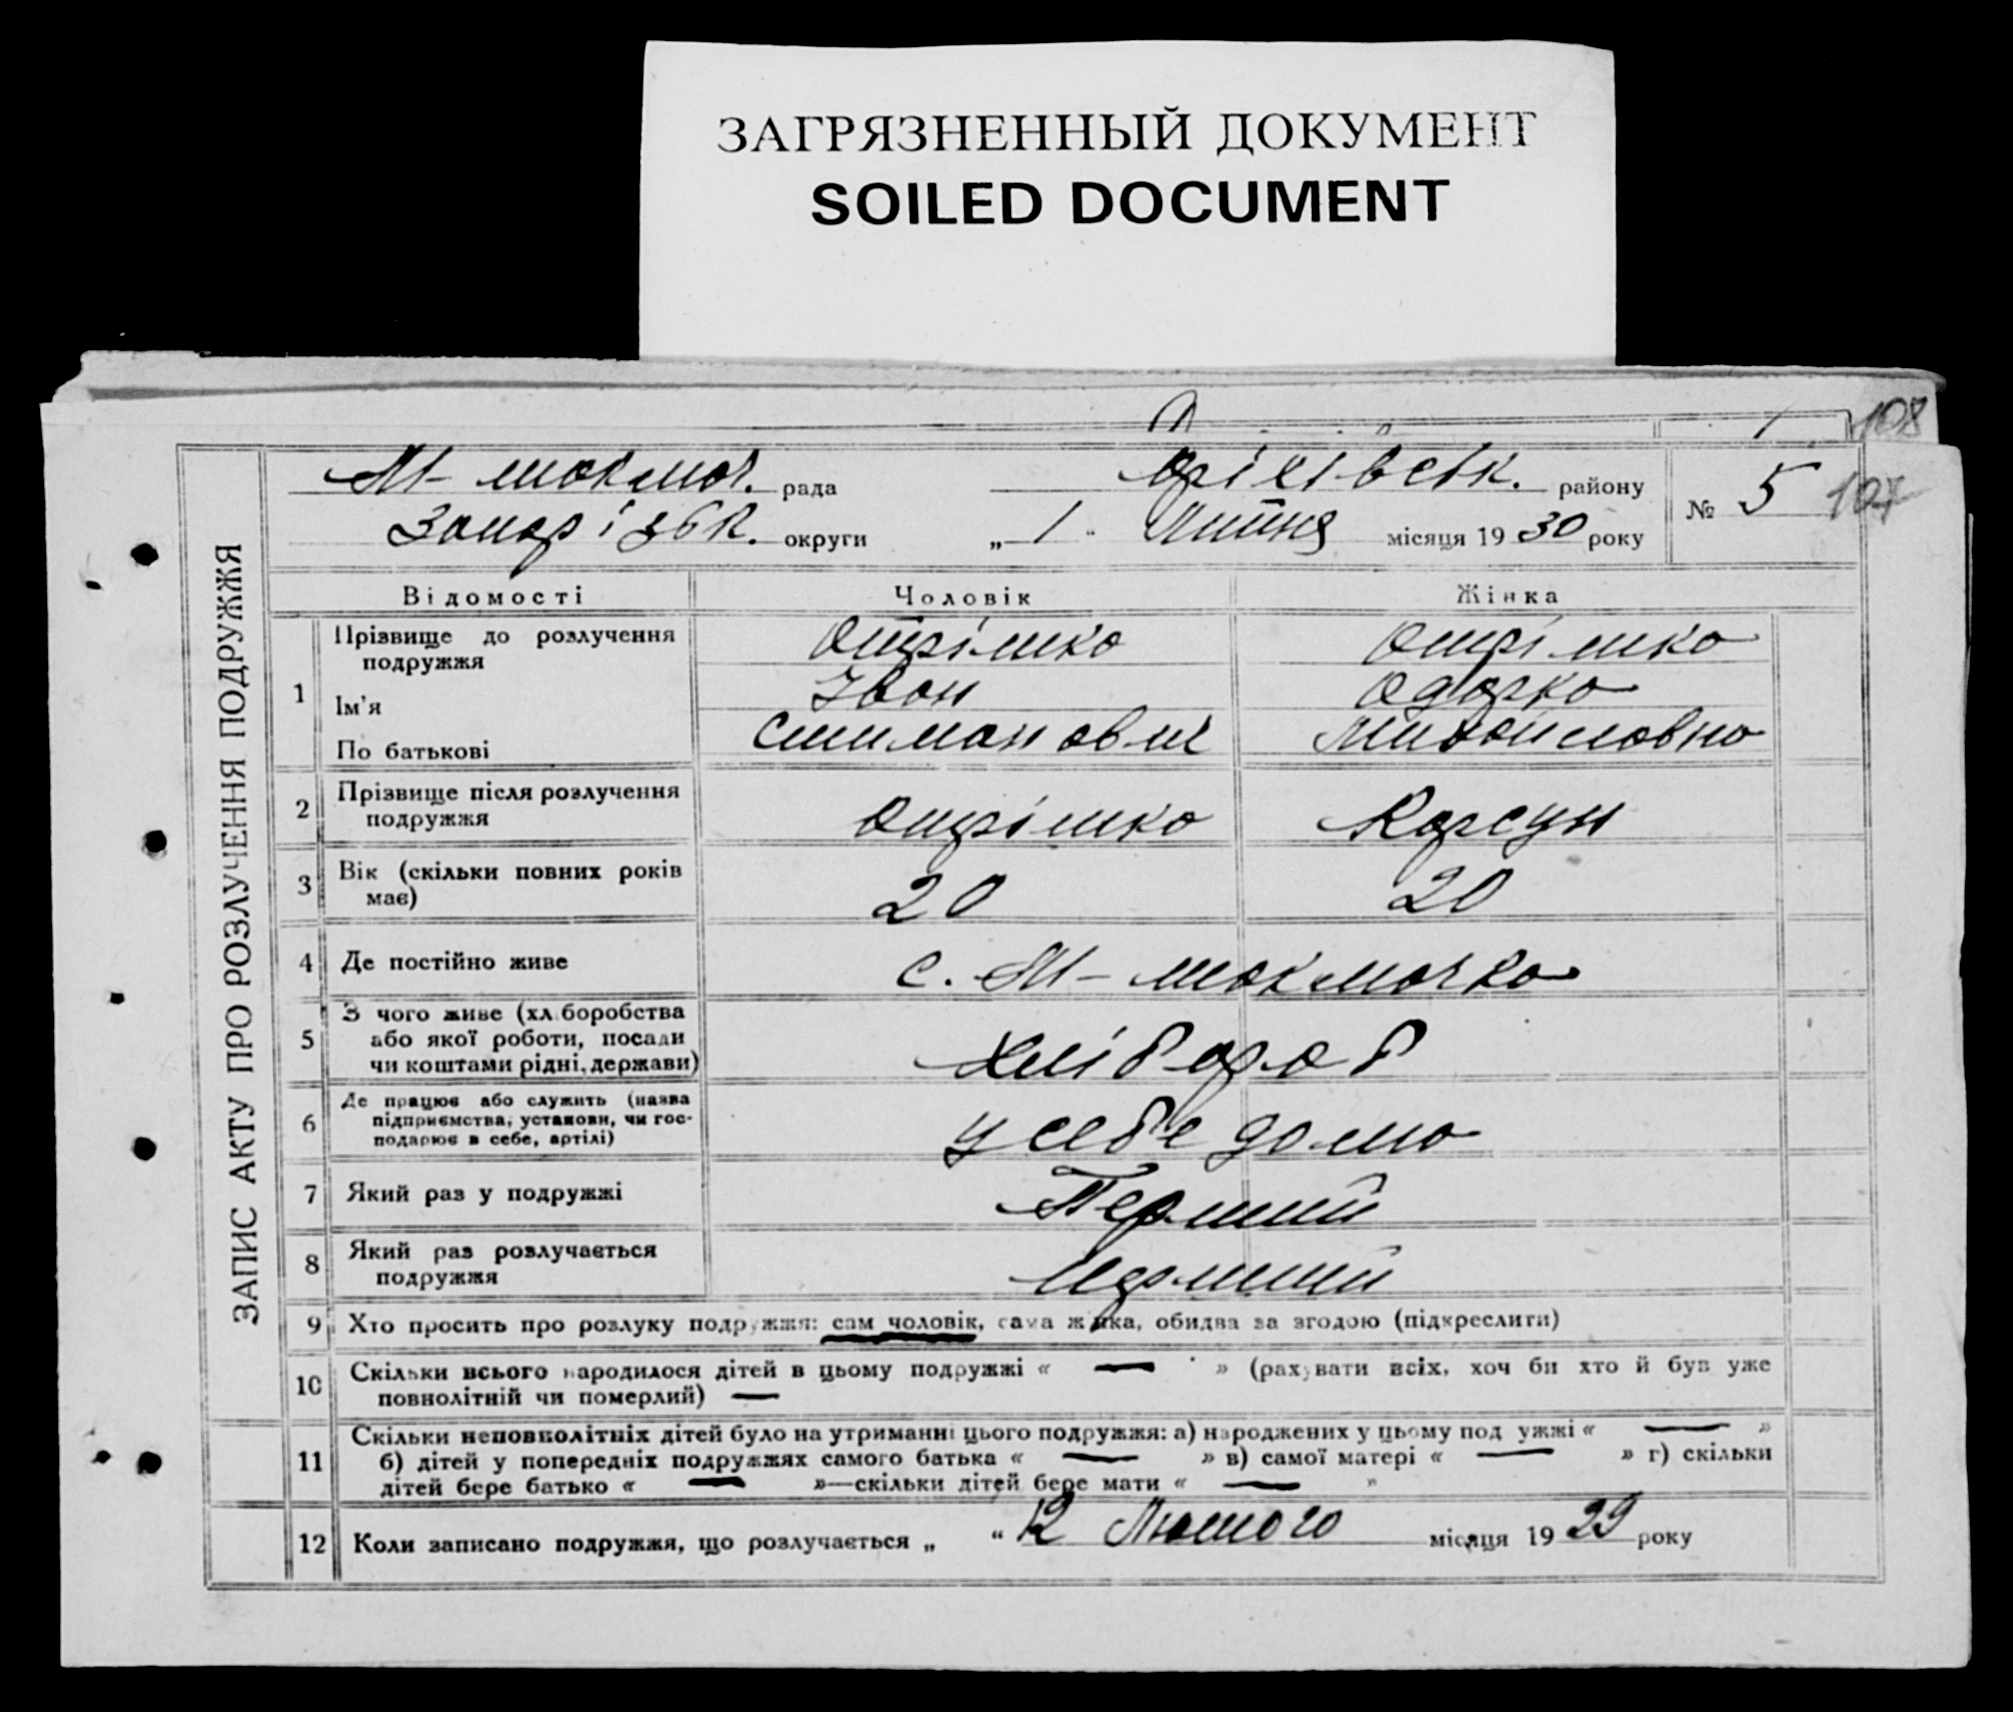 ЗАГРЯЗНЕННЫЙ ДОКУМЕНТ
SOILED DOCUMENT
108
М-токмач. рада Оріхівськ. району
№ 5 107
Запорізьк. округи „ 1 " Липня місяця 1930 року
ЗАПИС АКТУ ПРО РОЗЛУЧЕННЯ ПОДРУЖЖЯ
Відомості Чоловік Жінка
1 Прізвище до розлучення подружжя Отрішко Отрішко
Ім'я Іван Одарка
По батькові Михайловна
2 Прізвище після розлучення подружжя Отрішко Корсун
3 Вік (скільки повних років має) 20 20
4 Де постійно живе с. М-токмачка
5 З чого живе (хліборобства
або якої роботи, посади
чи коштами рідні, держави) хлібороб
6 Де працює або служить (назва
підприємства, установи, чи гос-
подарює в себе, артілі) у себе дома
7 Який раз у подружжі Перший
8 Який раз розлучається подружжя перший
9 Хто просить про розлуку подружжя: сам чоловік, сама жінка, обидва за згодою (підкреслити)
10 Скільки всього народилося дітей в цьому подружжі « — » (рахувати всіх, хоч би хто й був уже
повнолітній чи померлий) —
11 Скільки неповнолітніх дітей було на утриманні цього подружжя: а) народжених у цьому подружжі « — »
б) дітей у попередніх подружжях самого батька « — » в) самої матері « — » г) скільки
дітей бере батько « — »—скільки дітей бере мати « — »
12 Коли записано подружжя, що розлучається „ “ 12 Лютого місяця 1929 року